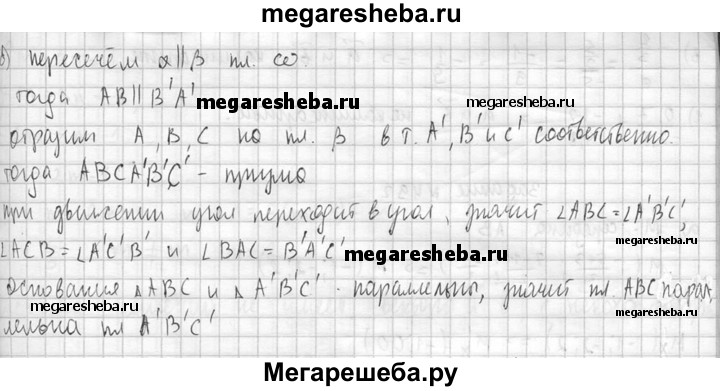 megaresheba.ru
б) пересечём α || β пл. ω
тогда AB || B'A' megaresheba.ru megaresheba.ru
отразим A, B, C на пл. β в т. A', B' и C' соответственно.
тогда ABCA'B'C' - призма
megaresheba.ru
при движении угол переходит в угол, значит ∠ABC = ∠A'B'C',
megaresheba.ru
∠ACB = ∠A'C'B' и ∠BAC = B'A'C' megaresheba.ru
основания △ABC и △ A'B'C' - параллельны, значит пл. ABC парал
megaresheba.ru megaresheba.ru
лельна пл A'B'C'
Мегарешеба.ру